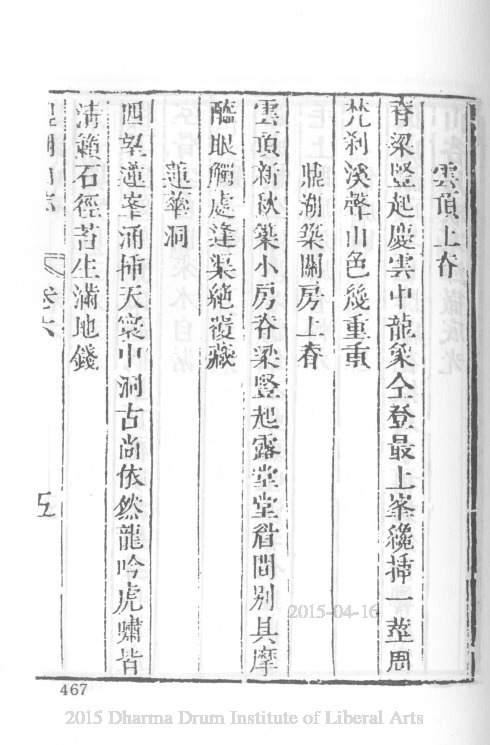 雲頂上脊
脊梁竪起慶雲中龍象仝登最上峯纔揷一莖周
梵剎溪聲山色幾重重
鼎湖築關房上脊
雲頂新秋築小房脊梁竪起露堂堂眉間別具摩
醯眼觸處逢渠絶覆藏
蓮華洞
四望蓮峯涌揷天窠中洞古尚依然龍吟虎嘯皆
淸籟石徑苔生滿地錢
鼎湖山志 卷之六 五
2015-04-16
467
2015 Dharma Drum Institute of Liberal Arts